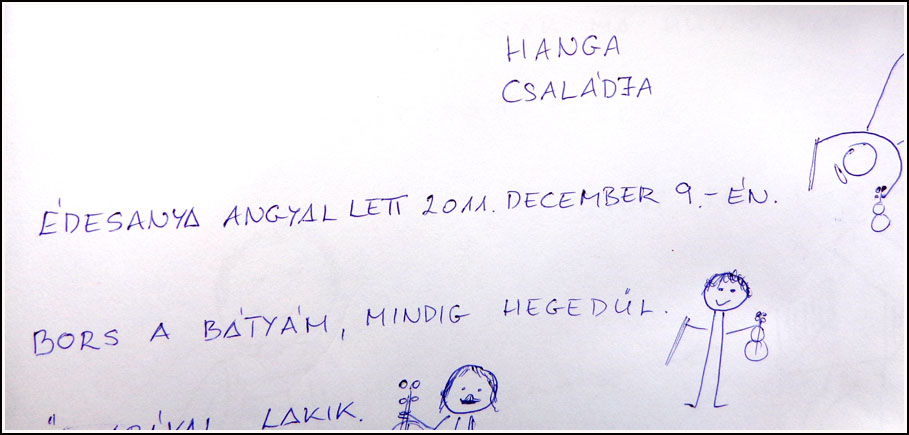 HANGA
CSALÁDJA
ÉDESANYA ANGYAL LETT 2011. DECEMBER 9.-ÉN.
BORS A BÁTYÁM, MINDIG HEGEDÜL.
LAKIK.